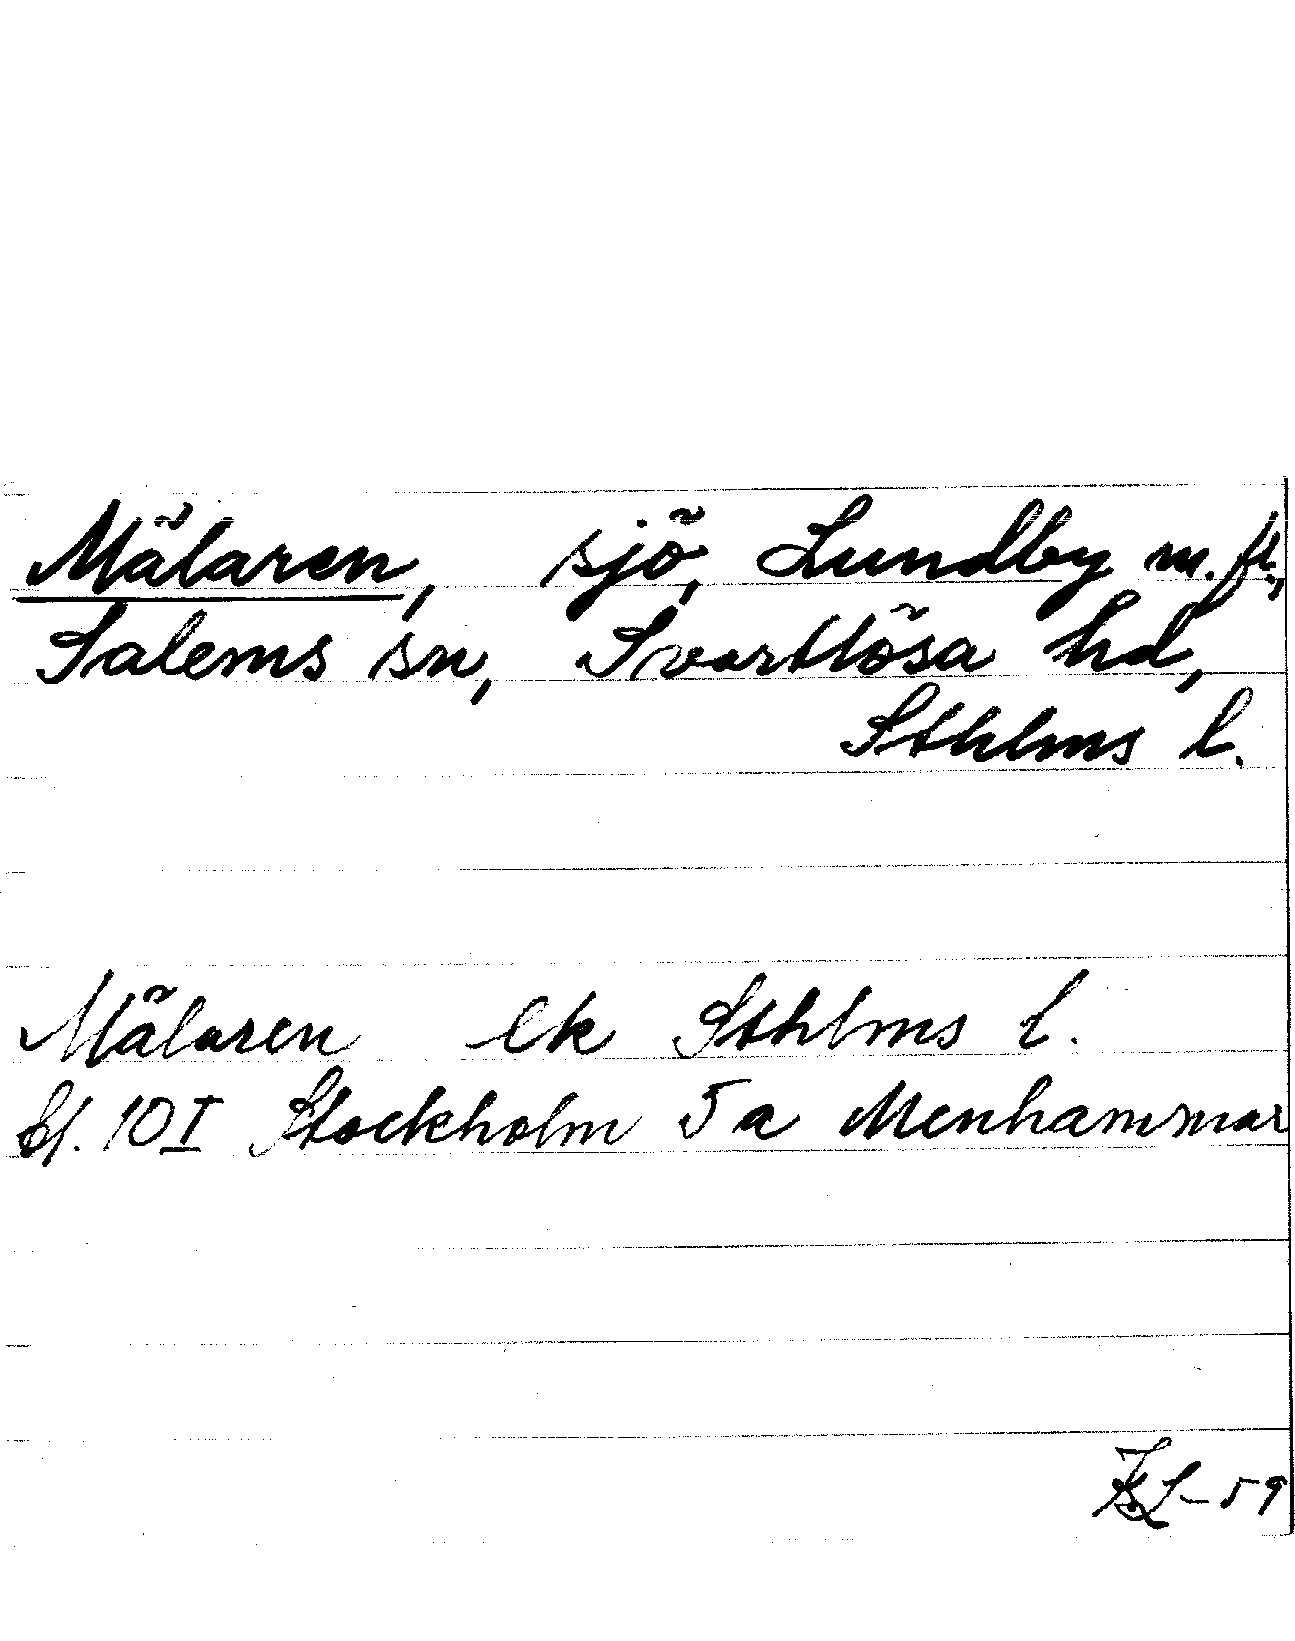 Mälaren, sjö, Lundby m. fl.,
Salems sn, Svartlösa hd,
Sthlms l.
Mälaren ek Sthlms l.
bl. 10 I Stockholm 5 a Menhammar
-59